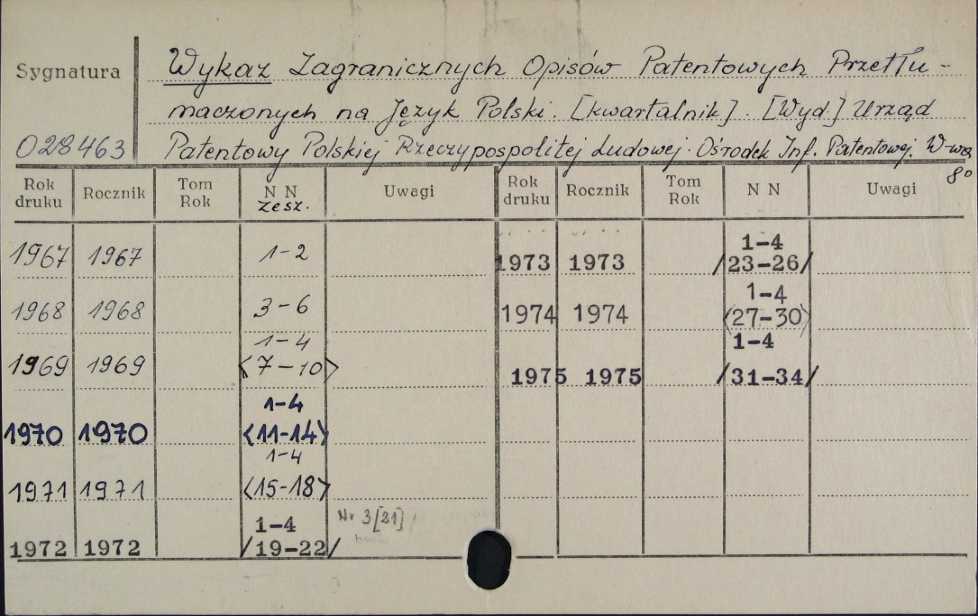 Sygnatura
028463
Wykaz Zagranicznych Opisów Patentowych Przetłu-
maczonych na Język Polski. [kwartalnik]. [Wyd.] Urząd
Patentowy Polskiej Rzeczypospolitej Ludowej. Ośrodek Inf. Patentowej. W-wa
8°
Rok druku Rocznik Tom Rok N N zesz. Uwagi Rok druku Rocznik Tom Rok N N Uwagi
1967 1967 1-2
1968 1968 3-6
1969 1969 1-4 <7-10>
1970 1970 1-4 <11-14>
1971 1971 1-4 <15-18>
1972 1972 1-4 /19-22/ Nr 3[21]
1973 1973 1-4 /23-26/
1974 1974 1-4 <27-30>
1975 1975 1-4 /31-34/